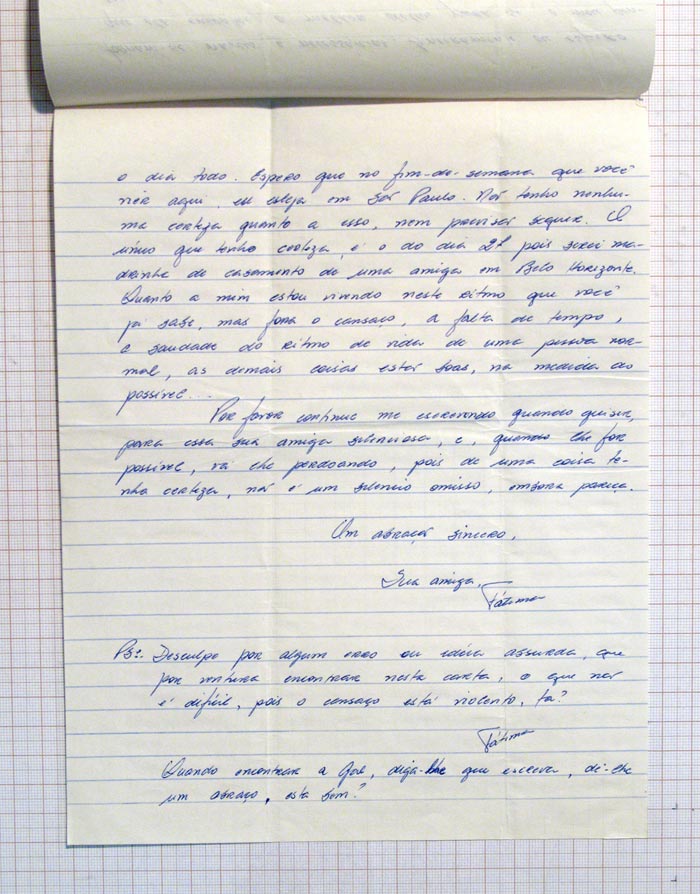 o dia todo. Espero que no fim-de-semana que você
vier aqui, eu esteja em São Paulo. Não tenho nenhu-
ma certeza quanto a isso, nem previsão sequer. O
único que tenho certeza, é o do dia 21 pois serei ma-
drinha de casamento de uma amiga em Belo Horizonte.
Quanto a mim estou vivendo neste ritmo que você
já sabe, mas fora o cansaço, a falta de tempo,
e saudade do ritmo de vida de uma pessoa nor-
mal, as demais coisas estão boas, na medida do
possível...
Por favor continue me escrevendo quando quiser,
para essa sua amiga silenciosa, e, quando lhe for
possível, vá lhe perdoando, pois de uma coisa te-
nha certeza, não é um silêncio omisso, embora pareça.
Um abraço sincero,
Sua amiga,
Fátima
PS:. Desculpe por algum erro ou idéia absurda, que
por ventura encontrar nesta carta, o que não
é difícil, pois o cansaço está violento, tá?
Fátima
Quando encontrar a, diga-lhe que escreva, dê-lhe
um abraço, está bom?